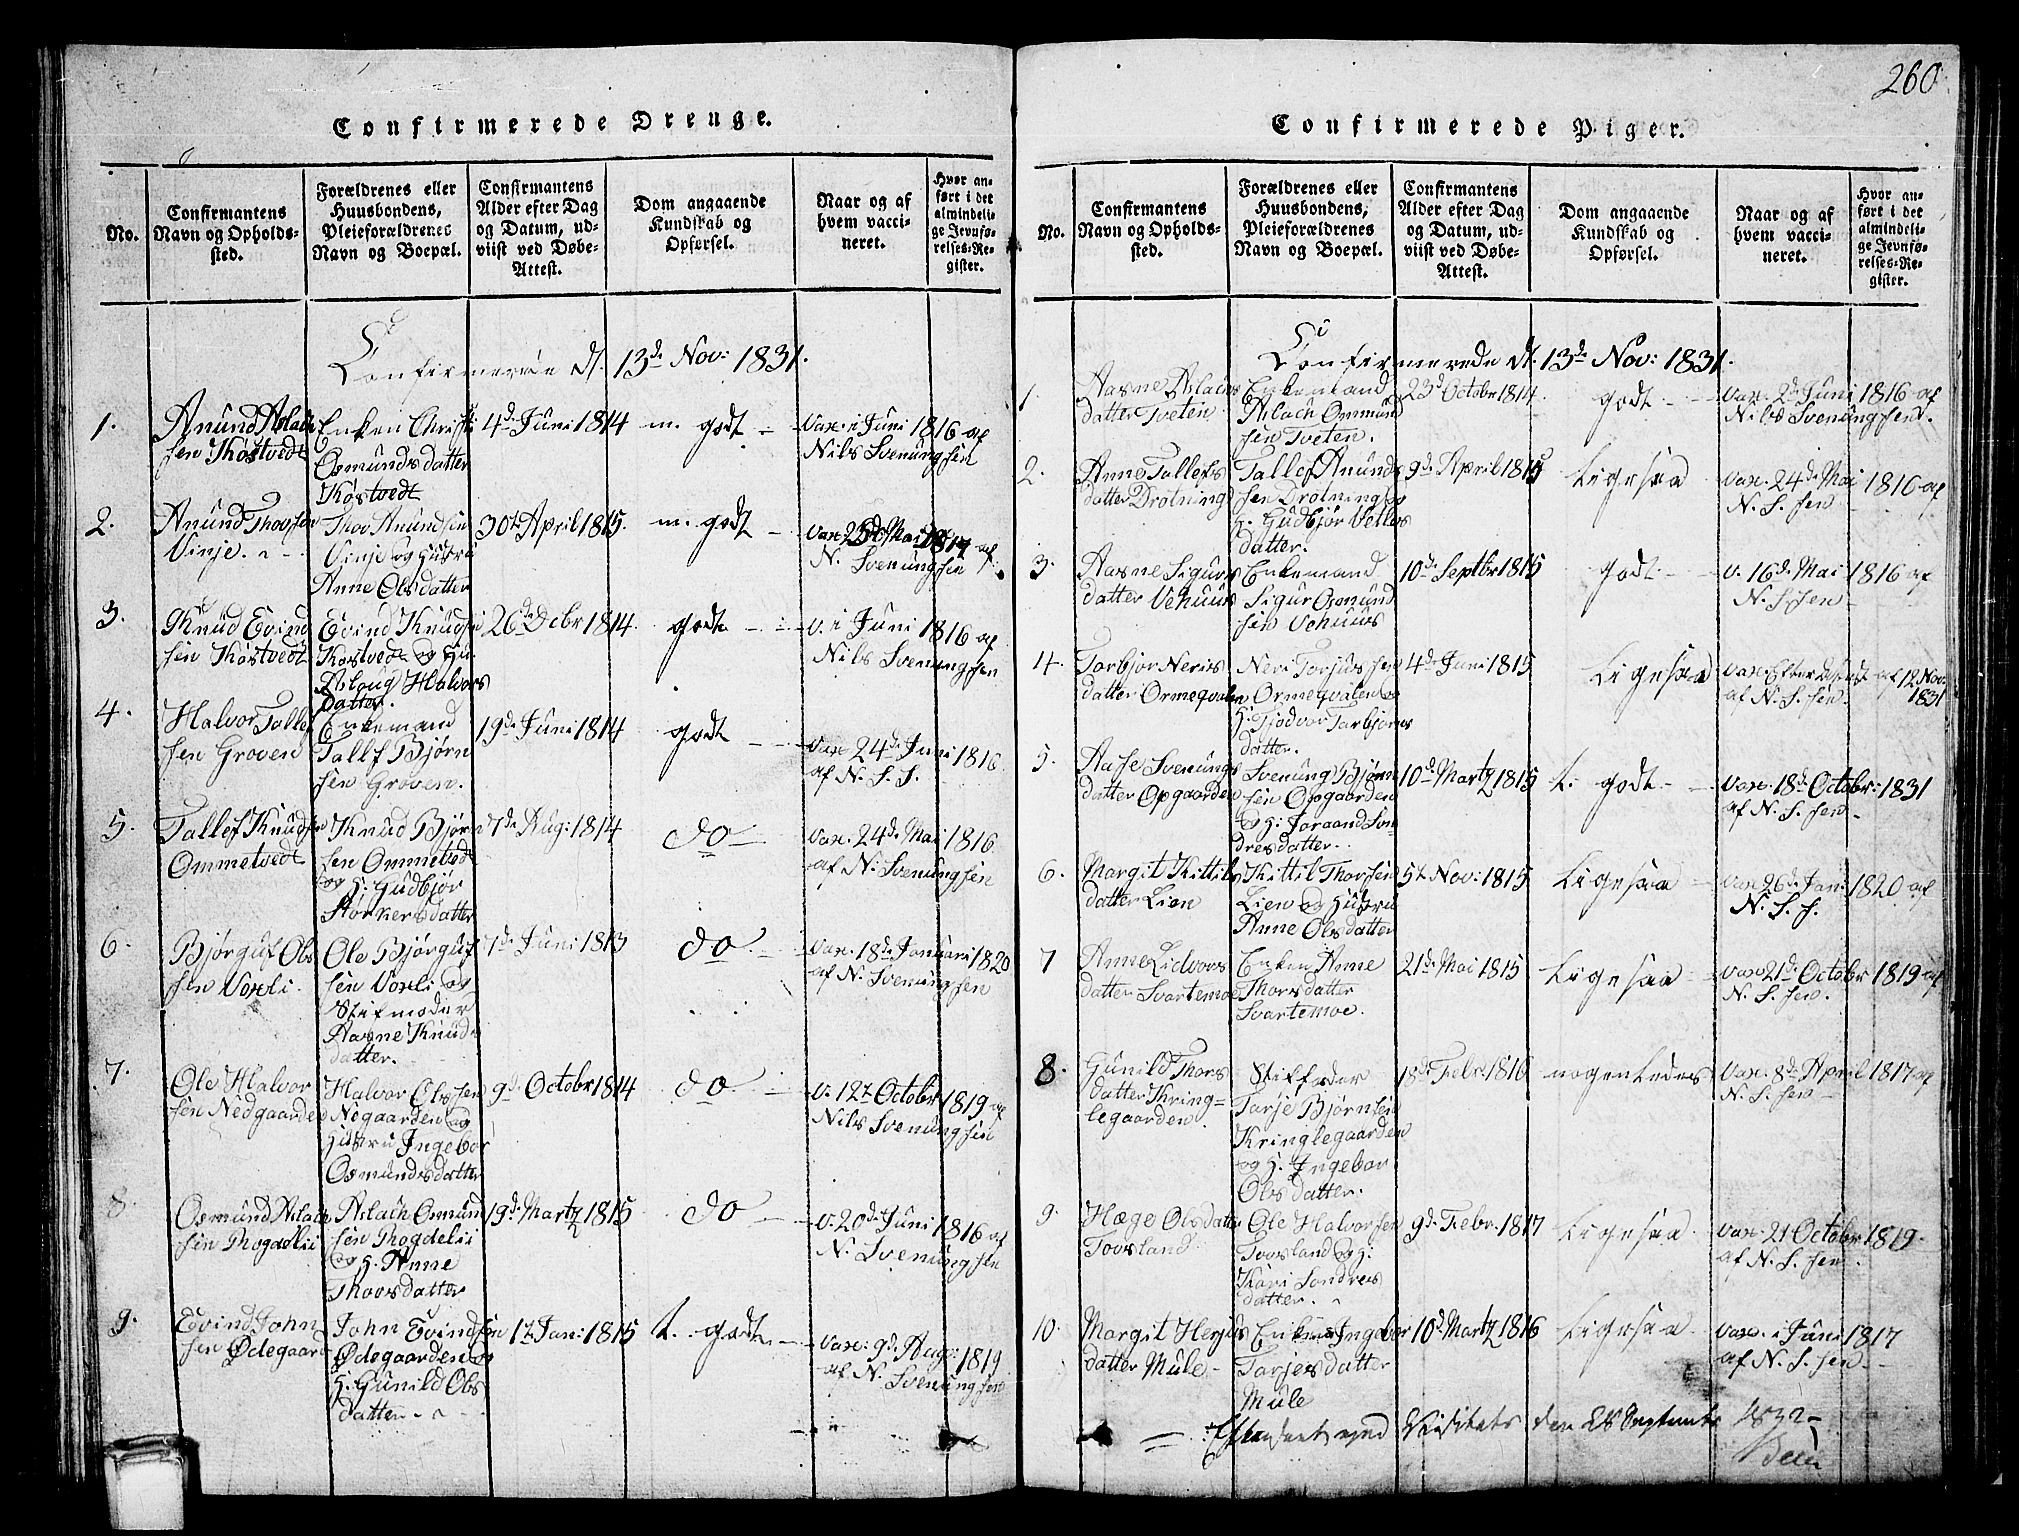 260
Confirmerede Drenge.
No.
Confirmantens
Navn og Opholds-
sted.
Forældrenes eller
Huusbondens,
Pleieforældrenes
Navn og Boepæl.
Confirmantens
Alder efter Dag
og Datum, ud-
viist ved Døbe-
Attest.
Dom angaaende
Kundskab og
Opførsel.
Naar og af
hvem vacci-
neret.
Hvor an-
ført i det
almindeli-
ge Jevnfø-
relses-Re-
gister.
Confirmerede d. 13de Nov: 1831.
1.
Anund Aslac
sen Kostvedt
Enken Christi
Osmundsdatter
Kostvedt
4de Juni 1814
m. godt
Vax. i Juni 1816 af
Nils Svenungsen
2.
Anund Thovsen
Vinje.
Thov Anundsen
Vinje og Hustru
Anne Olsdatter
30te April 1815.
m. godt
Vax. Mai af
N. Svenungsen
3.
Knud Evind
sen Kostvedt
Evind Knudsen
Kostvedt og Hu.
Aslaug Halvors
datter.
26de Dcbr 1814.
godt
V. i Juni 1816 af
Nils Svenungsen
4.
Halvor Tallef
sen Groven
Enkemand
Tallf Bjørn
sen Groven.
19de Juni 1814
godt
Vax 24de Juni 1816
af N. S. S.
5.
Tallef Knudsen
Ommetvedt
Knud Bjørn
sen Ommetvedt
og H. Gudbjør
Storkersdatter
7de Aug: 1814
do
Vax. 24de Mai 1816
af N. Svenungsen
6.
Bjørguf Ols
sen Voxli.
Ole Bjørguf
sen Voxli og
Stifmoder
Aasne Knuds
datter.
7de Juni 1813
do
Vax. 18de Januari 1820
af N. Svenungsen
7.
Ole Halvor
sen Nedgaarden
Halvor Olssen
Negaarden og
Hustru Ingebor
Osmundsdatter
9de Octobr 1814
do
V. 12te October 1819 af
Nils Svenungsen
8.
Osmund Aslac
sen Rogdelii
Aslach Osmund
sen Rogdelii
og H. Anne
Thovsdatter
19de Martz 1815
do
V. 20de Juni 1816 af
N. Svenungsen
9.
Evind John
sen Ødegaard
John Evindsen
Ødegaarden og
H. Gunild Ols
datter
1te Jan: 1815
t. godt.
Vax: 9de Aug: 1819
af N. Svenungsen
Confirmerede Piger.
No.
Confirmantens
Navn og Opholds-
sted.
Forældrenes eller
Huusbondens,
Pleieforældrenes
Navn og Boepæl.
Confirmantens
Alder efter Dag
og Datum, ud-
viist ved Døbe-
Attest.
Dom angaaende
Kundskab og
Opførsel.
Naar og af
hvem vacci-
neret.
Hvor an-
ført i det
almindeli-
ge Jevnfø-
relses-Re-
gister.
Confirmerede d. 13de Nov: 1831.
1.
Aasne Aslacs
datter Tveten
Enkemand
Aslach Osmund
sen Tveten.
23de Octobr 1814
godt
Vax. 2de Juni 1816 af
Nils Svenungsen.
2.
Anne Tallefs
datter Drotning
Tallef Anunds
sen Drotning og
H. Gudbjør Vetles
datter.
9de April 1815
Ligesaa
Vax. 24de Mai 1816 af
N. S. sen
3.
Aasne Sigurs
datter Vehuus
Enkemand
Sigur Osmund
sen Vehuus
10de Septbr 1815
godt
V. 16de Mai 1816 af
N. S. sen
4.
Torbjor Neries
datter Ormeqvalen
Neri Torjussen
Ormeqvalen og
H. Tjodvor Torbjorns
datter.
4de Juni 1815
Ligesaa
Vax. Efter Attest af 12 Nov:
af N. S. sen. 1831
5.
Aase Svenungs
datter Opgaarden
Svenung Bjørn
sen Opgaarden
og H. Joraand Son
dresdatter.
10de Martz 1815
t. godt
Vax. 18de Octobr: 1831
af N. S. sen.
6.
Margit Kittils
datter Lien
Kittil Thorssen
Lien og Hustru
Anne Olsdatter
5te Nov: 1815
Ligesaa
Vax 26de Jan: 1820 af
N. S. S.
7
Anne Lidvors
datter Svartemoe
Enken Anne
Thorsdatter
Svartemoe.
21de Mai 1815
Ligesaa
Vax 21de Octobr 1819 af
N. S. sen.
8.
Gunild Thors
datter Kring-
legaarden.
Stiffader
Tarje Bjørnsen
Kringlegaarden
og H. Ingebor
Olsdatter.
18de Febr 1816
nogenledes
Vax. 8de April 1817 af
N. S. sen
9.
Hæge Olsdatter
Tovsland
Ole Halvorsen
Tovsland og H.
Kari Sondres
datter.
9de Febr. 1817
Ligesaa
Vax. 21 October 1819.
af N. S. sen.
10.
Margit Herjus
datter Mule
Enken Ingebor
Tarjesdatter
Mule
10de Martz 1816
Ligesaa
Vax. i Juni 1817
af N. S. sen.
Efterseet ved Visitats den 28 Septembr 1832